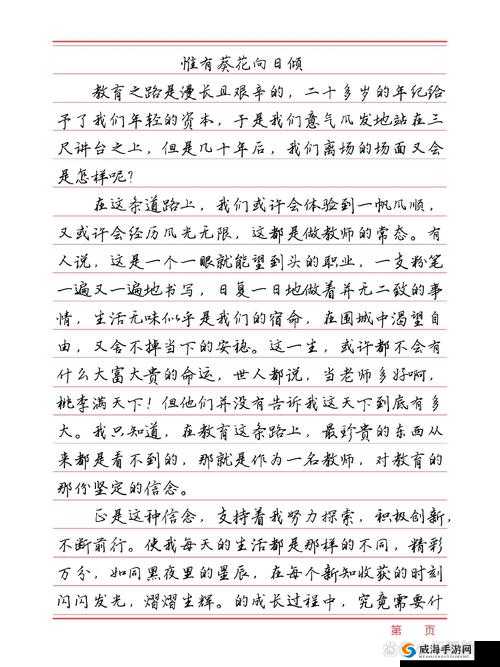 惟有葵花向日倾
教育之路是漫长且艰辛的，二十多岁的年纪给
予了我们年轻的资本，于是我们意气风发地站在三
尺讲台之上，但是几十年后，我们离场的场面又会
是怎样呢？
在这条道路上，我们或许会体验到一帆风顺，
又或许会经历风光无限，这都是做教师的常态。有
人说，这是一个一眼就能望到头的职业，一支粉笔
一遍又一遍地书写，日复一日地做着并无二致的事
情，生活无味似乎是我们的宿命，在围城中渴望自
由，又舍不掉当下的安稳。这一生，或许都不会有
什么大富大贵的命运，世人都说，当老师多好啊，
桃李满天下！但他们并没有告诉我这天下到底有多
大。我只知道，在教育这条路上，最珍贵的东西从
来都是看不到的，那就是作为一名教师，对教育的
那份坚定的信念。
正是这种信念，支持着我努力探索，积极创新，
不断前行。使我每天的生活都是那样的不同，精彩
万分，如同黑夜里的星辰，在每个新知收获的时刻
闪闪发光，熠熠生辉。的成长过程中，究竟需要什
第 页
威海手游网